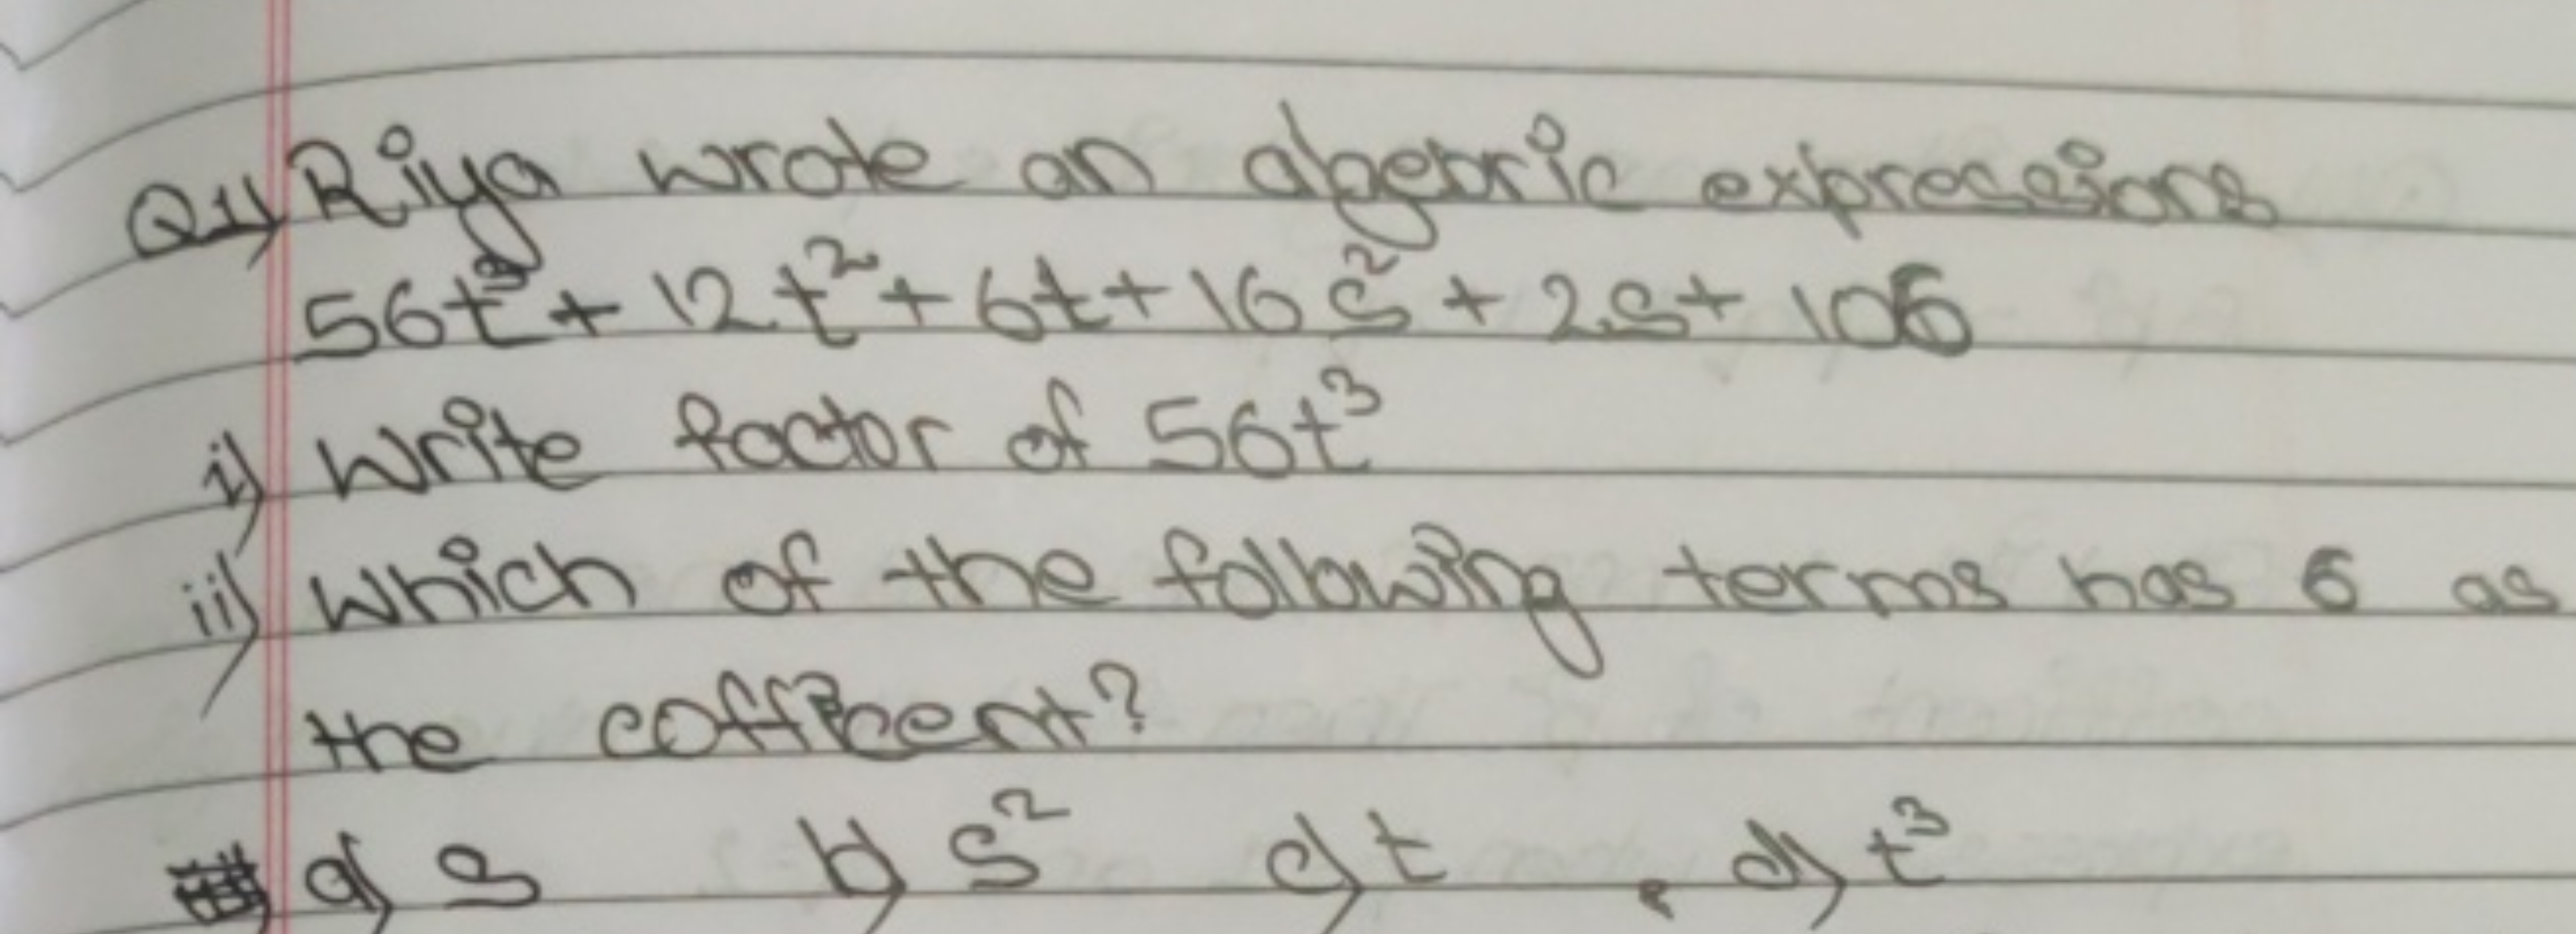 Q1) Riya wrote an algebric expressions
56t³ + 12t² + 6t + 16s² + 2s + 106
i) Write factor of 56t³
ii) Which of the following terms has 6 as
the cofficent?
a) s b) s² c) t d) t³